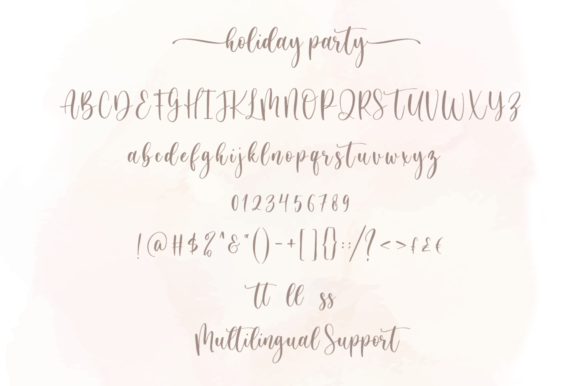 holiday party
ABCDEFGHIJKLMNOPQRSTUVWXYZ
abcdefghijklmnopqrstuvwxyz
0123456789
!@#$%^&*()-+[]{}::/?<>£Σ€
tt ll ss
Multilingual Support